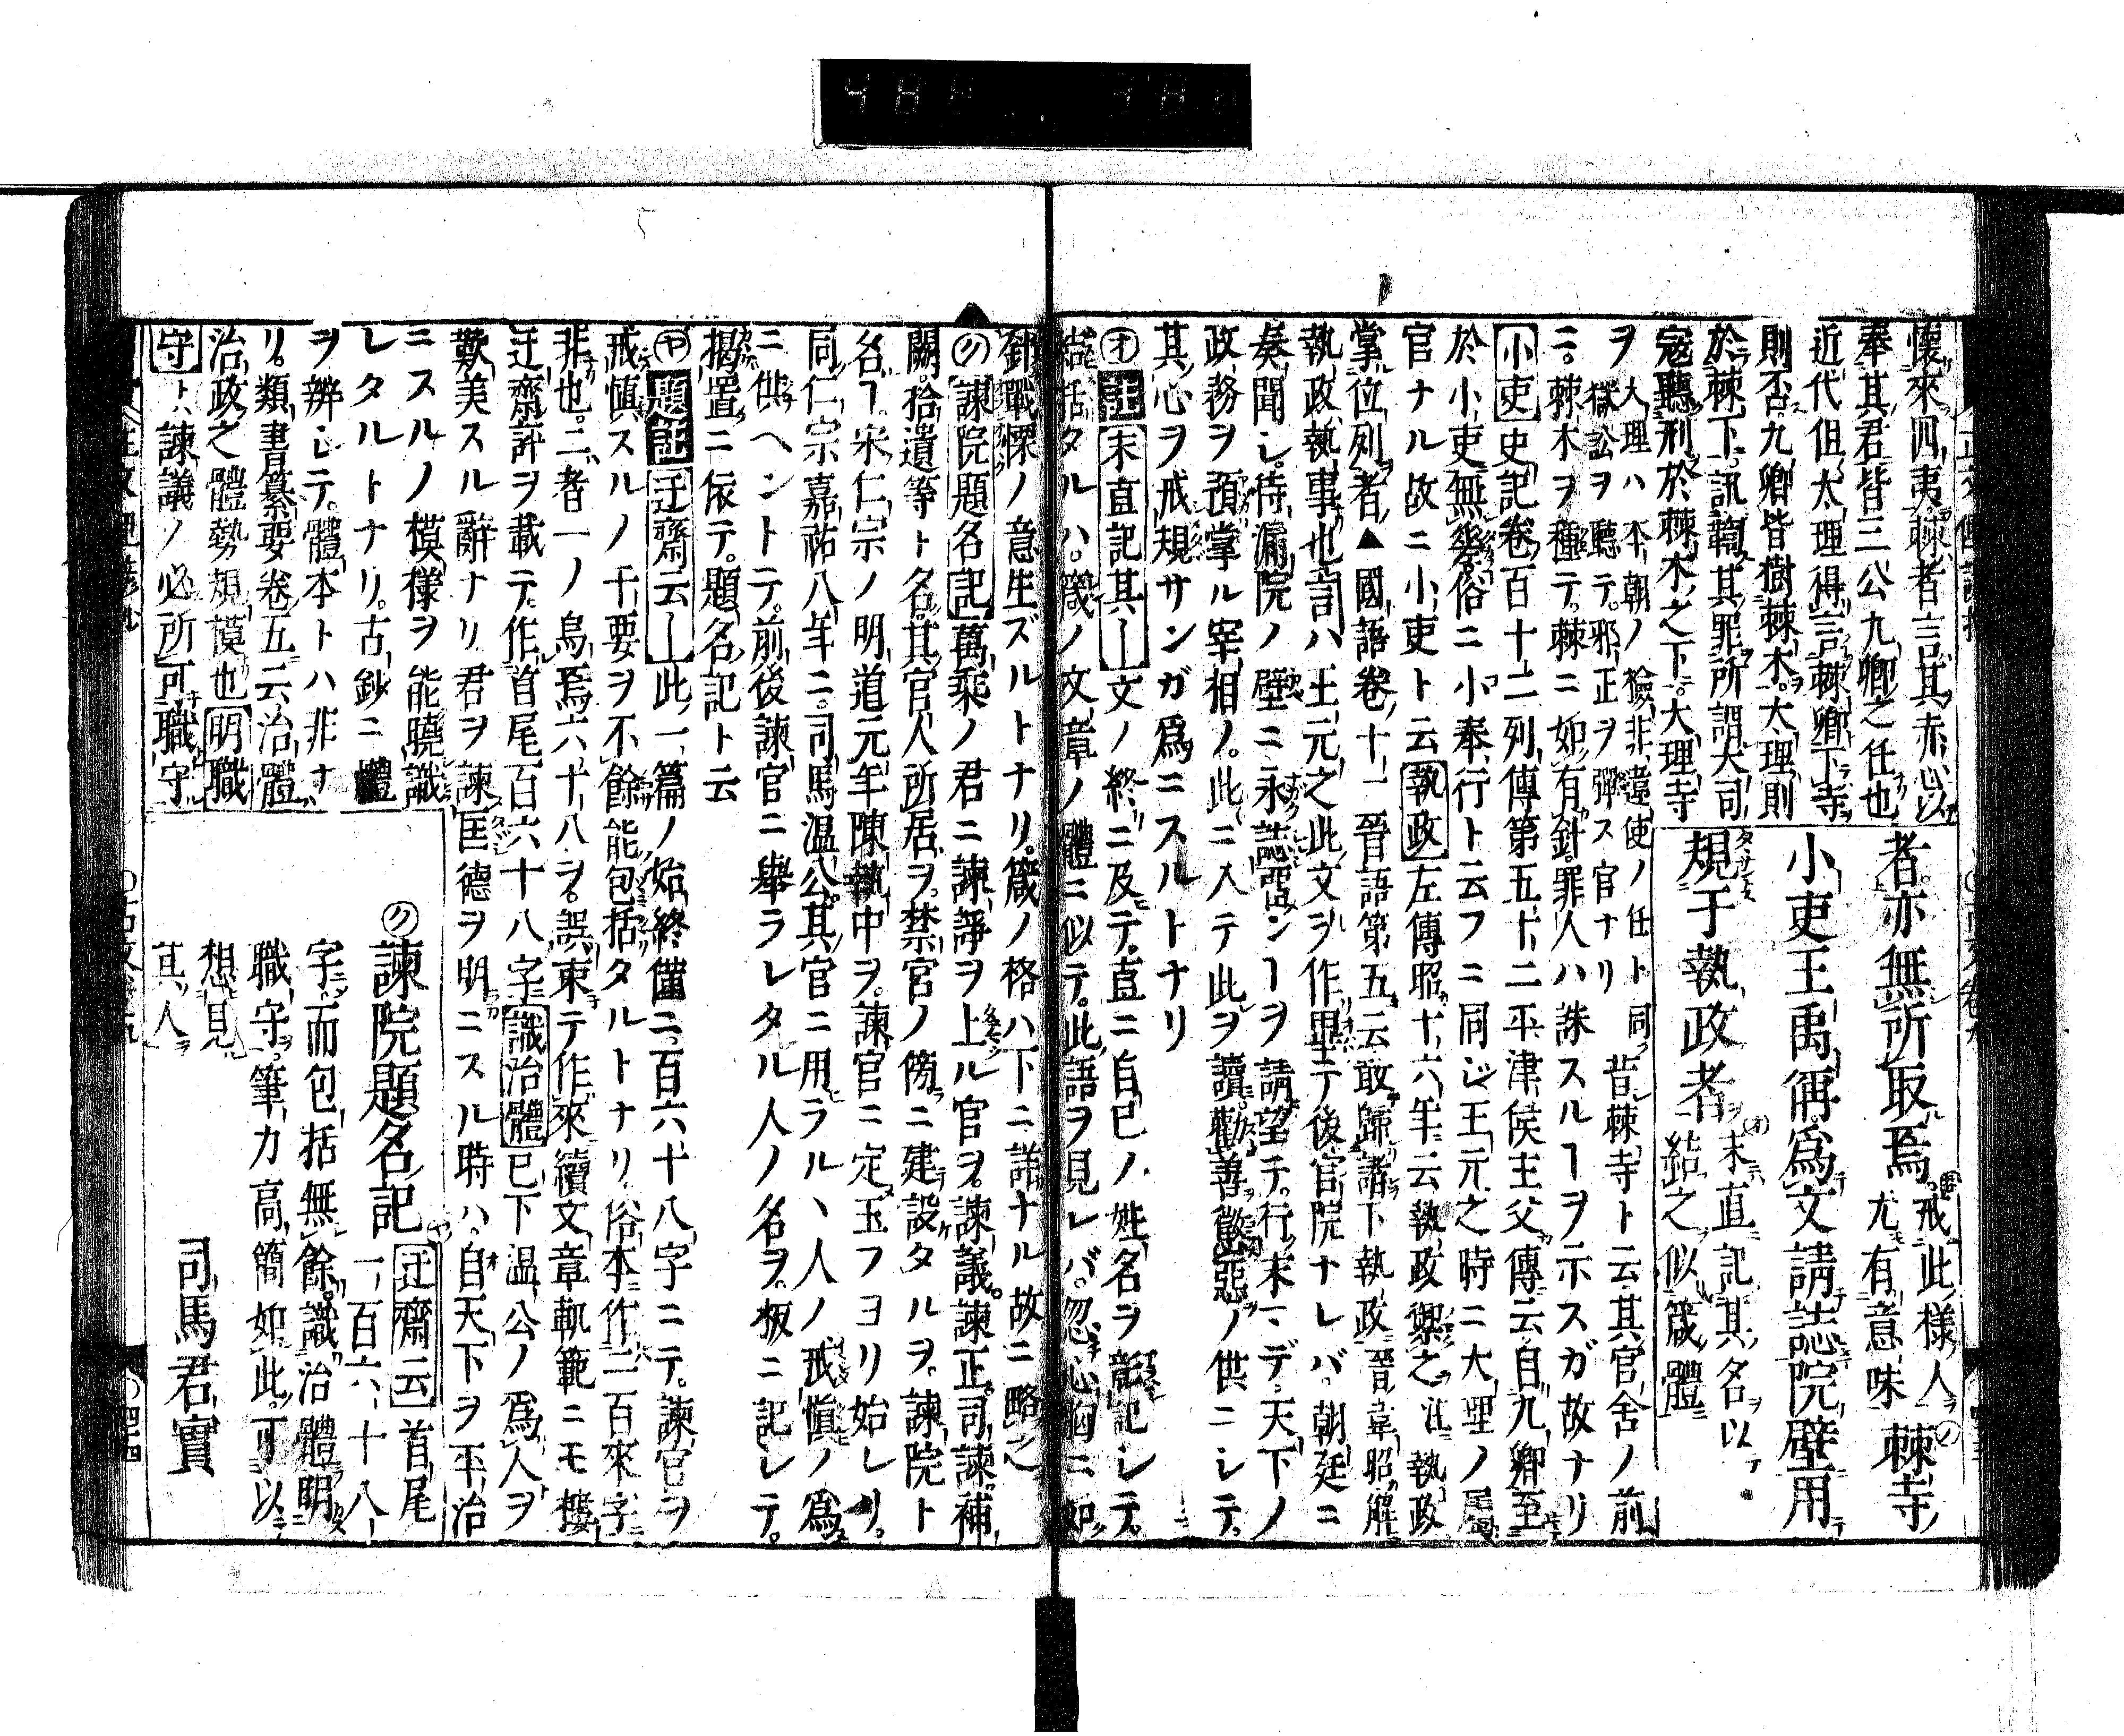 懷來四夷棘者言其赤心以
奉其君皆三公九卿之任也
近代但太理得言棘卿下寺
則否九卿皆樹棘木大理則
於棘下訊鞫其罪所謂大司
寇聽刑於棘木之下大理寺
者亦無所取焉
戒此樣人
尤有意味
棘寺
小吏王禹偁爲文請誌院壁用
規于執政者
末直記其名以
結之似箴體
ヲ大理ハ本朝ノ檢非違使ノ任ト同昔棘寺ト云其官舍ノ前
獄訟ヲ聽テ邪正ヲ彈ス官ナリ
ニ棘木ヲ種テ棘ニ如有針罪人ハ誅スルヿヲ示スガ故ナリ
小吏史記卷百十二列傳第五十二平津侯主父傳云自九卿至
於小吏無
俗ニ小奉行ト云フニ同シ王元之時ニ大理ノ屬
官ナル故ニ小吏ト云執政左傳昭十六年云執政禦之注執政
掌位列者▲國語卷十一晉語第五云敢歸諸下執政晉韋昭解
執政執事也言ハ王元之此文ヲ作畢テ後官院ナレバ朝廷ニ
奏聞シ待漏院ノ壁ニ永誌置ンヿヲ請望テ行末マデ天下ノ
政務ヲ預掌ル宰相ノ此ニ入テ此ヲ讀勸善懲惡ノ供ニシテ
其心ヲ戒規サンガ爲ニスルトナリ
オ註末直記其文ノ終ニ及テ直ニ自已ノ姓名ヲ記シテ
結タルハ箴ノ文章ノ體ニ似テ此語ヲ見レバ忽心胸ニ如
針戰慄ノ意生ズルトナリ箴ノ格ハ下ニ詳ナル故ニ略之
ク諫院題名記萬乘ノ君ニ諫諍ヲ上ル官ヲ諫議諫正司諫補
闕拾遺等ト名其官人所居ヲ禁官ノ傍ニ建設タルヲ諫院ト
名ヿ宋仁宗ノ明道元年陳執中ヲ諫官ニ定玉フヨリ始レリ
同仁宗嘉祐八年ニ司馬温公其官ニ用ラルヽ人ノ戒愼ノ爲
ニ供ヘントテ前後諫官ニ舉ラレタル人ノ名ヲ板ニ記レテ
揭置ニ依テ題名記ト云
ヤ題註迂齋云此一篇ノ始終僅ニ百六十八字ニテ諫官ヲ
戒愼スルノ干要ヲ不餘能包括タルトナリ俗本作二百來字
非也二者一ノ烏焉六十八ヲ誤束テ作來續文章軌範ニモ樓
迂齋評ヲ載テ作首尾百六十八字識治體已下温公ノ爲人ヲ
歎美スル辭ナリ君ヲ諫匡德ヲ明ニスル時ハ自天下ヲ平治
ニスルノ模樣ヲ能曉識
レタルトナリ古鈔ニ體
ヲ辨シテ體本トハ非ナ
リ類書纂要卷五云治體
治政之體勢規模也明職
守上諫議ノ必所可職守
ク諫院題名記
迂齋云首尾
一百六十八
字而包括無餘識治體明
職守筆力高簡如此可以
想見
其人
司馬君實